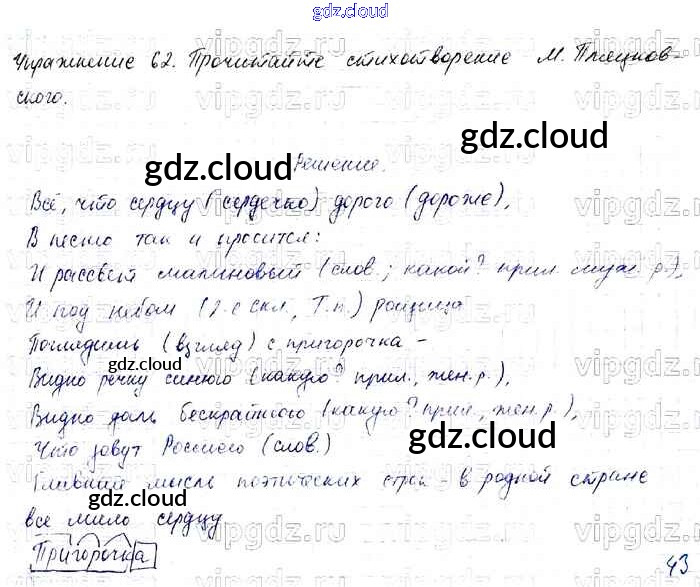 gdz.cloud
Упражнение 62. Прочитайте стихотворение М. Пляцков-
ского.
gdz.cloud
gdz.cloud
Решение.
Всё, что сердцу (сердечко) дорого (дороже),
В песню так и просится:
И рассвет малиновый (слов.; какой? прил. муж. р.),
И под небом (2-е скл., Т.п.) рощица
Поглядишь (взгляд) с пригорочка –
gdz.cloud
Видно речку синюю (какую? прил., жен. р.),
Видно даль бескрайнюю (какую? прил., жен. р.),
Что зовут Россиею (слов.)
gdz.cloud
Главный мысль поэтических строк – в родной стране
gdz.cloud
все мило сердцу
Пригорочка
43